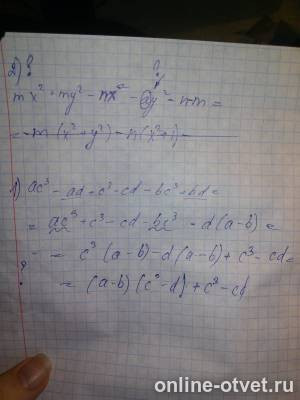 2)
mx² + my² - nx² - ny² - n - m =
= m(x² + y²) - n(x² + 1) -
1) ac³ - ad + c³ - cd - bc³ + bd =
= ac³ + c³ - cd - bc³ - d(a-b) =
= c³(a-b) - d(a-b) + c³ - cd =
= (a-b)(c³-d) + c³ - cd
online-otvet.ru